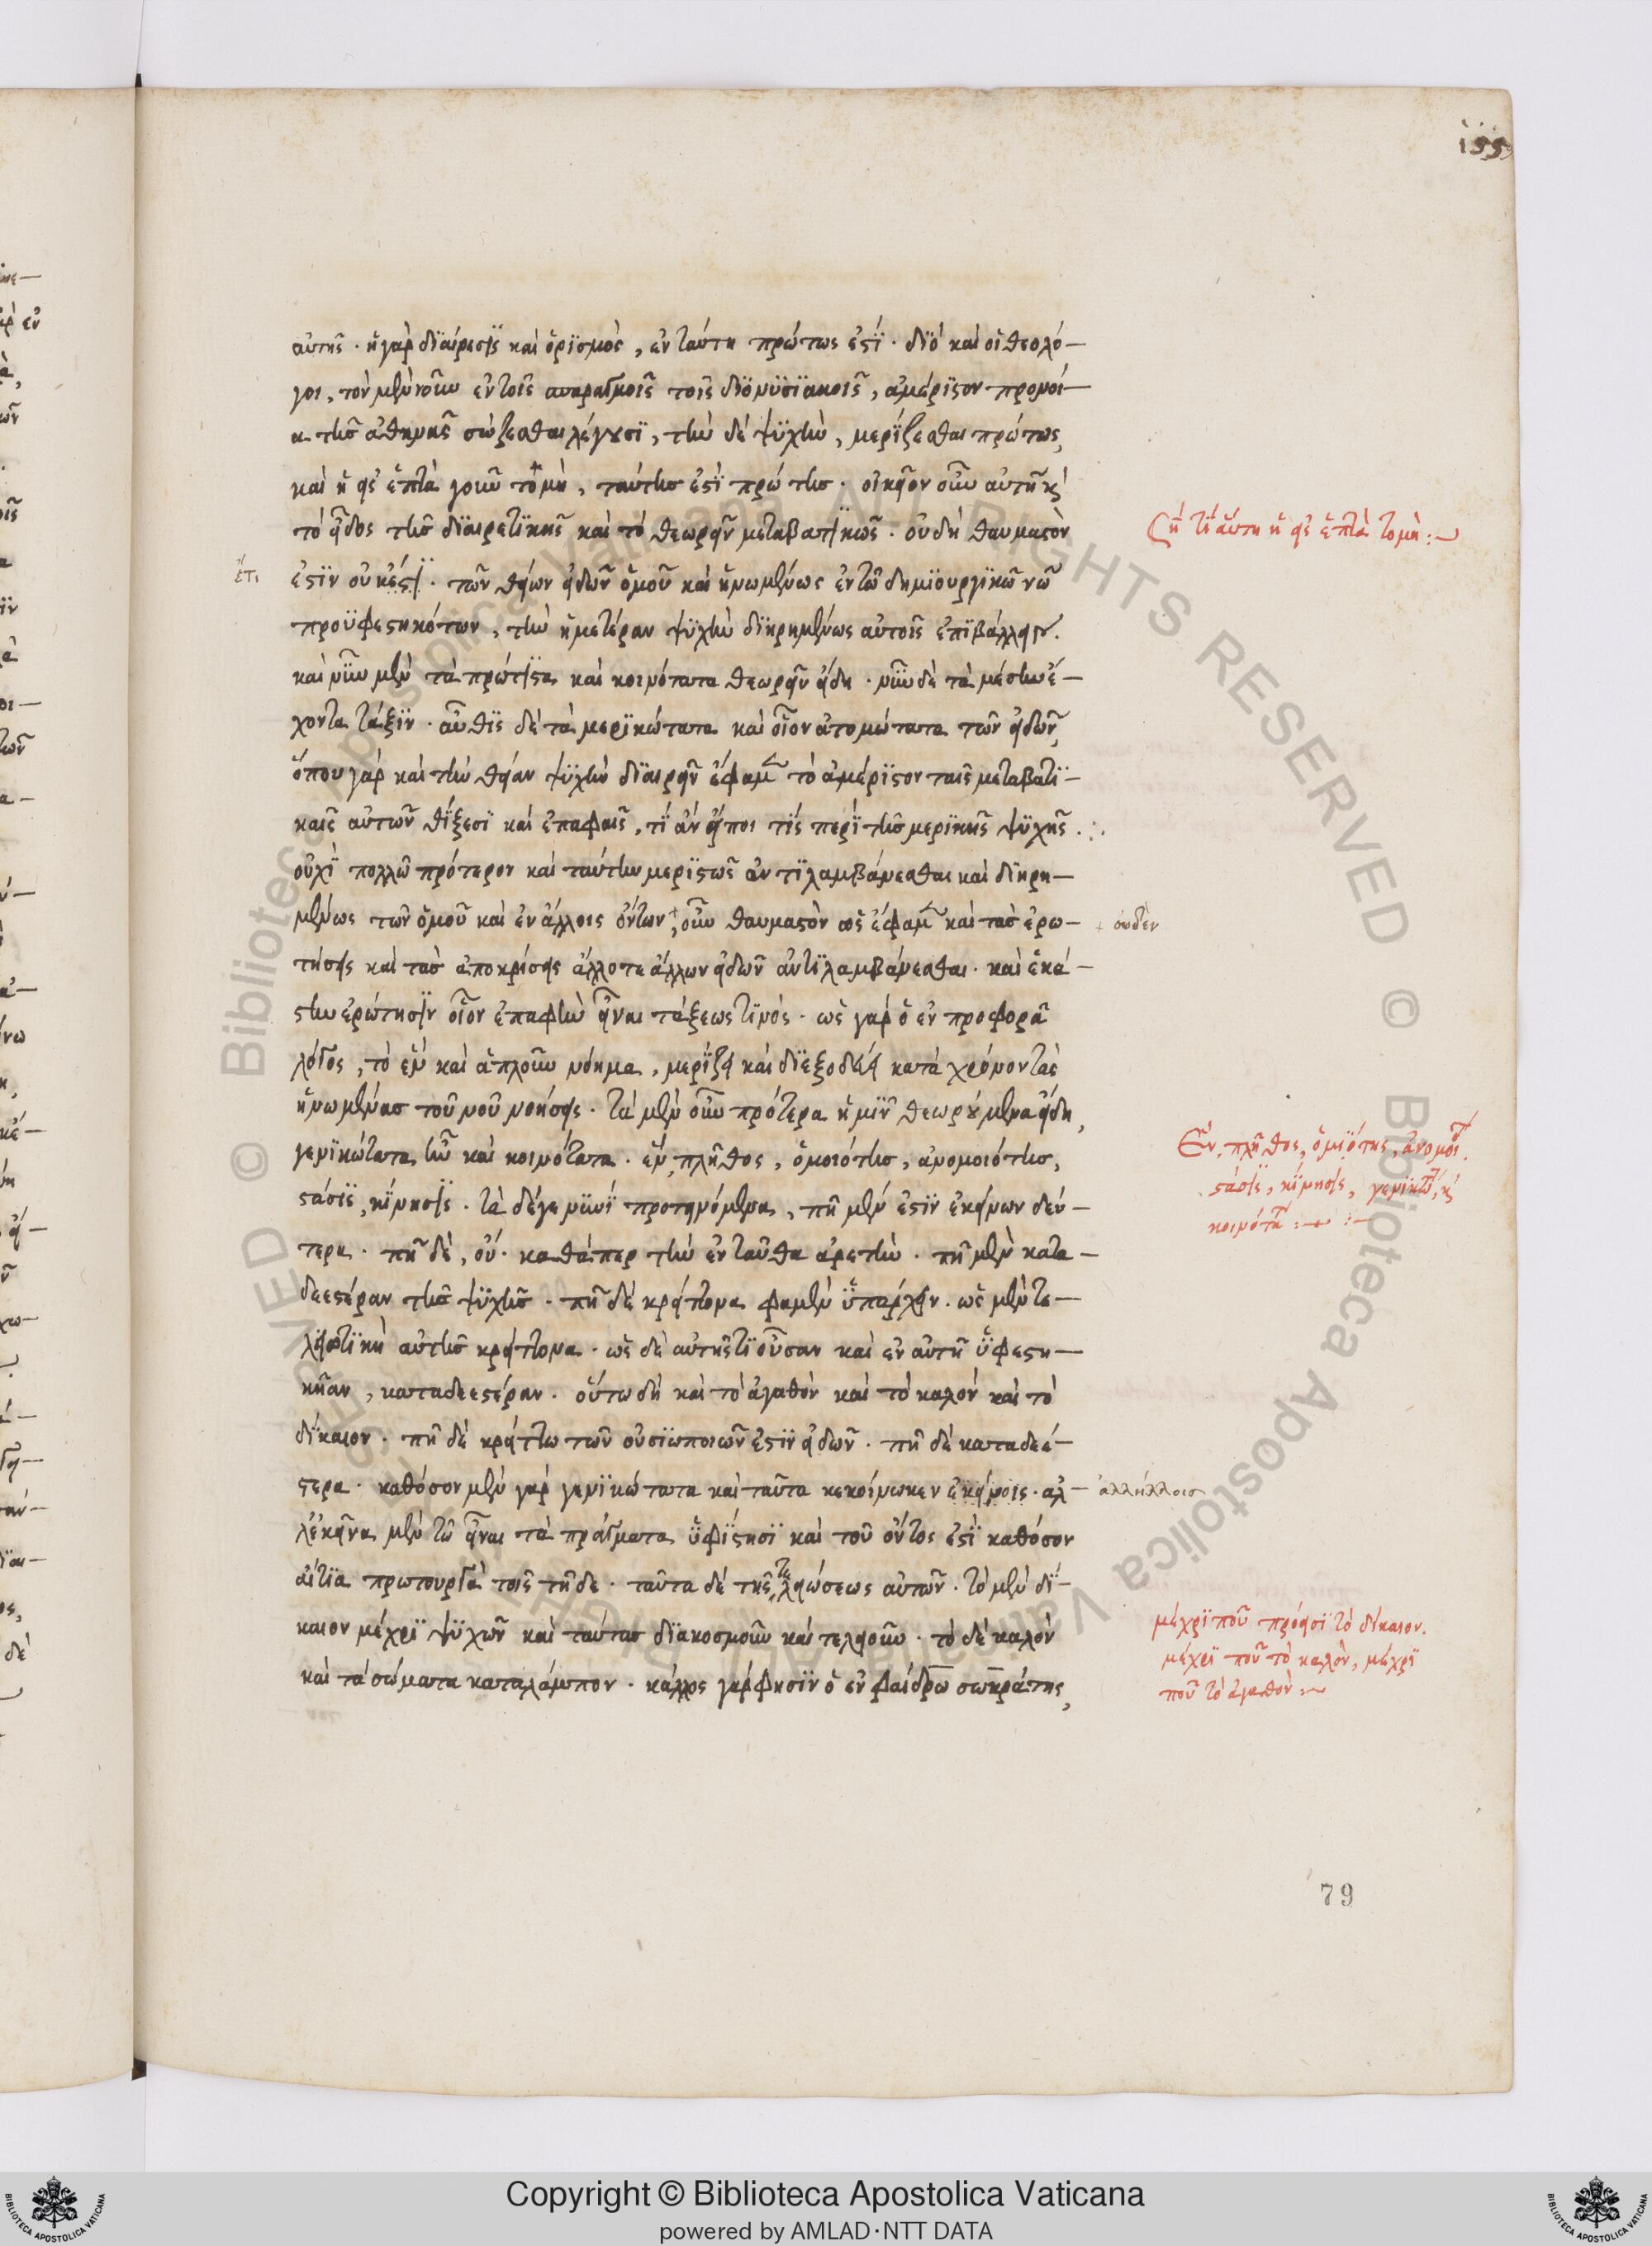 ἰςςς
αὐτῆς · ἡ γὰρ διαίρεσις καὶ ὁρισμὸς, ἐν ταύτῃ πρώτως ἐστί · διὸ καὶ οἱ θεολό-
γοι, τὸν μὲν νοῦν ἐν τοῖς σπαραγμοῖς τοῖς διονυσιακοῖς, ἀμέριστον προνοί-
α τῆς ἀθηνᾶς σώζεσθαι λέγουσι, τὴν δὲ ψυχὴν, μερίζεσθαι πρώτως,
καὶ ἡ εἰς ἑπτὰ γοῦν τομὴ, ταύτης ἐστὶ πρώτης · οἰκεῖον οὖν αὐτῇ καὶ
τὸ εἶδος τῆς διαιρετικῆς καὶ τὸ θεωρεῖν μεταβατικῶς · οὐ δὴ θαυμαστὸν
ἔτι
ἐστὶν οὐκέστι · τῶν θείων εἰδῶν ὁμοῦ καὶ ἡνωμένως ἐν τῷ δημιουργικῷ νῷ
προϋφεστηκότων, τὴν ἡμετέραν ψυχὴν διῃρημένως αὐτοῖς ἐπιβάλλειν.
καὶ νῦν μὲν τὰ πρώτιστα καὶ κοινότατα θεωρεῖν εἴδη · νῦν δὲ τὰ μέσην ἔ-
χοντα τάξιν · αὖθις δὲ τὰ μερικώτατα καὶ οἷον ἀτομώτατα τῶν εἰδῶν,
ὅπου γὰρ καὶ τὴν θείαν ψυχὴν διαιρεῖν ἔφαμεν τὸ ἀμέριστον ταῖς μεταβατι-
καῖς αὐτῶν θίξεσι καὶ ἐπαφαῖς, τί ἂν εἴποι τίς περὶ τῆς μερικῆς ψυχῆς.
οὐχὶ πολλῷ πρότερον καὶ ταύτην μεριστῶς ἀντιλαμβάνεσθαι καὶ διῃρη-
μένως τῶν ὁμοῦ καὶ ἐν ἄλλοις ὄντων, οὖν θαυμαστὸν ὡς ἔφαμεν καὶ τὰς ἐρω-
+ οὐδὲν
τήσεις καὶ τὰς ἀποκρίσεις ἄλλοτε ἄλλων εἰδῶν ἀντιλαμβάνεσθαι · καὶ ἑκά-
στην ἐρώτησιν οἷον ἐπαφὴν εἶναι τάξεως τινός · ὡς γὰρ ὁ ἐν προφορᾷ
λόγος, τὸ ἓν καὶ ἁπλοῦν νόημα, μερίζει καὶ διεξοδεύει κατὰ χρόνον τὰς
ἡνωμένας τοῦ νοῦ νοήσεις · τὰ μὲν οὖν πρότερα ἡμῖν θεωρούμενα εἴδη,
γενικώτατα ἦν καὶ κοινότατα · ἓν, πλῆθος, ὁμοιότης, ἀνομοιότης,
στάσις, κίνησις · τὰ δέ γε νυνὶ προτεινόμενα, πῇ μέν ἐστιν ἐκείνων δεύ-
τερα · πῇ δὲ, οὔ · καθάπερ τὴν ἐνταῦθα ἀρετὴν · πῇ μὲν κατα-
δεεστέραν τῆς ψυχῆς · πῇ δὲ κρείττονα φαμὲν ὑπάρχειν · ὡς μὲν τε-
λειωτικὴ αὐτῆς κρείττονα · ὡς δὲ αὐτῆς τι οὖσαν καὶ ἐν αὐτῇ ὑφεστη-
κῖαν, καταδεεστέραν · οὕτω δὴ καὶ τὸ ἀγαθὸν καὶ τὸ καλὸν καὶ τὸ
δίκαιον · πῇ δὲ κρείττω τῶν οὐσιωποιῶν ἐστὶν εἰδῶν · πῇ δὲ καταδεέ-
στερα · καθόσον μὲν γὰρ γενικώτατα καὶ ταῦτα κεκοίνωκεν ἐκείνοις · ἀλ-
ἀλλήλλοις
λ' ἐκεῖνα μὲν τῷ εἶναι τὰ πράγματα ὑφίστησι καὶ τοῦ ὄντος ἐστὶ καθόσον
αἴτια πρωτουργὰ τοῖς τῇδε · ταῦτα δὲ τῆς τελειώσεως αὐτῶν · τὸ μὲν δί-
καιον μέχρι ψυχῶν καὶ ταύτας διακοσμοῦν καὶ τελειοῦν · τὸ δὲ καλὸν
καὶ τὰ σώματα καταλάμπον · κάλλος γάρ φησιν ὁ ἐν φαίδρω σωκράτης,
ζή τί αὕτη ἡ εἰς ἑπτὰ τομὴ :
Ἓν, πλῆθος, ὁμοιότης, ἀνομοι.
στάσις, κίνησις, γενικώτ, καὶ
κοινότατα :
μέχρι ποῦ πρόεισι τὸ δίκαιον.
μέχρι ποῦ τὸ καλὸν, μέχρι
ποῦ τὸ ἀγαθὸν :
79
© Biblioteca Apostolica Vaticana ALL RIGHTS RESERVED
Copyright © Biblioteca Apostolica Vaticana
powered by AMLAD·NTT DATA
BIBLIOTECA APOSTOLICA VATICANA
BIBLIOTECA APOSTOLICA VATICANA